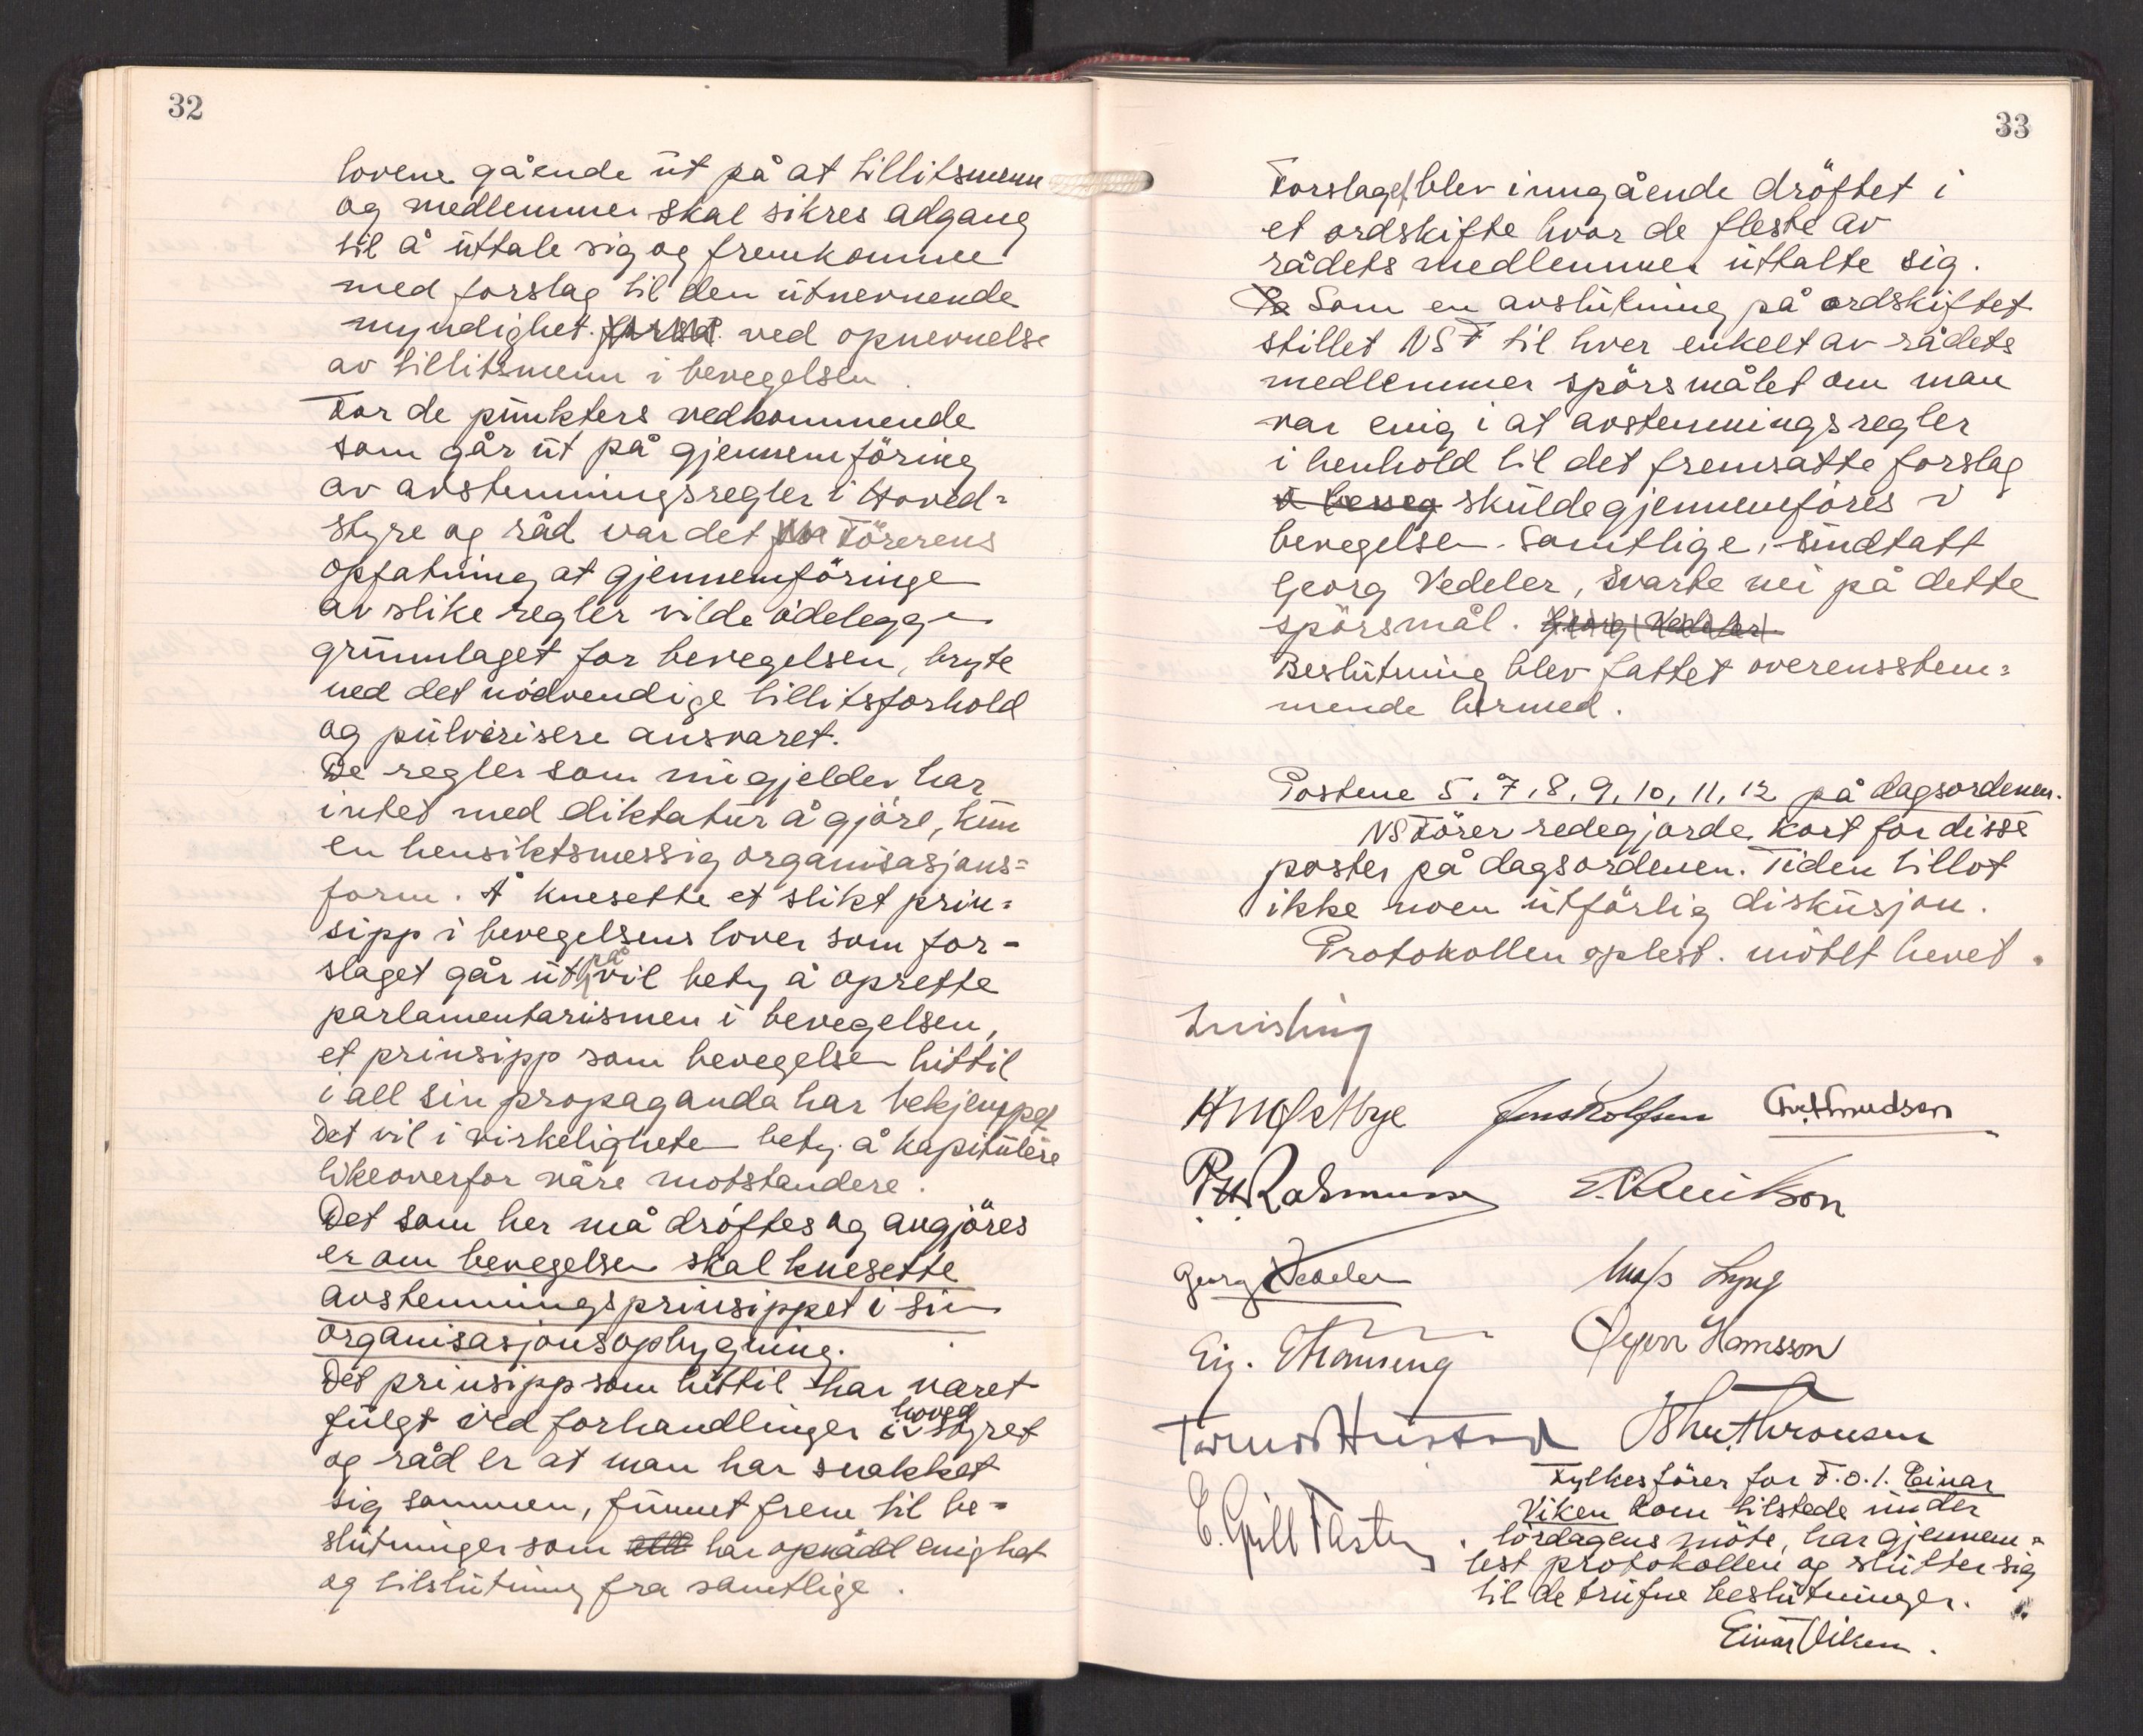 32
lovene gående ut på at tillitsmenn
og medlemmer skal sikres adgang
til å uttale sig og fremkomme
med forslag til den utnevnende
myndighet. ved opnevnelse
av tillitsmenn i bevegelsen.
For de punkters vedkommende
som går ut på gjennemföring
av avstemningsregler i Hoved=
styre og råd var det Förerens
opfatning at gjennemföringe
av slike regler vilde ödelegge
grunnlaget for bevegelsen, bryte
ned det nödvendige tillitsforhold
og pulverisere ansvaret.
De regler som nu gjelder har
intet med diktatur å gjöre, kun
en hensiktsmessig organisasjons=
form. Å knesette et slikt prin=
sipp i bevegelsens lover som for-
slaget går ut på vil bety å oprette
parlamentarismen i bevegelsen,
et prinsipp som bevegelsen hittil
i all sin propaganda har bekjempet
Det vil i virkeligheten bety å kapitulere
likeoverfor våre motstandere.
Det som her må dröftes og avgjöres
er om bevegelsen skal knesette
avstemningsprinsippet i sin
organisasjonsopbygning.
Det prinsipp som hittil har været
fulgt ved forhandlinger i hovedstyret
og råd er at man har snakket
sig sammen, funnet frem til be=
slutninger som har opnådd enighet
og tilslutning fra samtlige.
33
Forslaget blev inngående dröftet i
et ordskifte hvor de fleste av
rådets medlemmer uttalte sig.
Som en avslutning på ordskiftet
stillet NSF til hver enkelt av rådets
medlemmer spörsmålet om man
var enig i at avstemningsregler
i henhold til det fremsatte forslag
i beveg skulde gjennemföres i
bevegelsen. Samtlige, undtatt
Georg Vedeler, svarte nei på dette
spörsmål. Georg Vedeler
Beslutning blev fattet overensstem=
mende hermed.
Postene 5, 7, 8, 9, 10, 11, 12 på dagsordenen.
NS Förer redegjorde kort for disse
poster på dagsordenen. Tiden tillot
ikke noen utförlig diskusjon.
Protokollen oplest. mötet hevet.
Quisling
Jens Rolfsen
R. Rasmussen
Georg Vedeler
Mass Lyng
Ørjan Hansson
Tormod Hustad
Fylkesförer for F.o.l. Einar
Viken kom tilstede under
lördagens möte, har gjennem=
lest protokollen og slutter sig
til de trufne beslutninger.
Einar Viken.